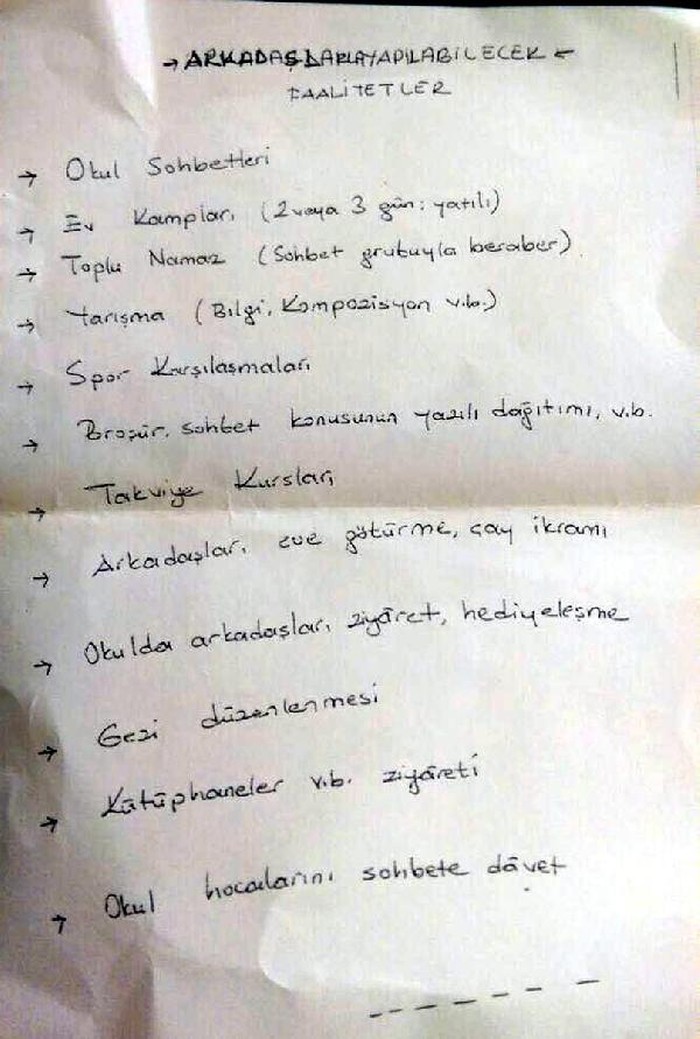 → ARKADAŞLARLA YAPILABİLECEK ←
FAALİYETLER
→ Okul Sohbetleri
→ Ev Kampları (2 veya 3 gün: yatılı)
→ Toplu Namaz (Sohbet grubuyla beraber)
→ Yarışma (Bilgi, Kompozisyon v.b.)
→ Spor Karşılaşmaları
→ Broşür, sohbet konusunun yazılı dağıtımı, v.b.
→ Takviye Kursları
→ Arkadaşları eve götürme, çay ikramı
→ Okulda arkadaşları ziyâret, hediyeleşme
→ Gezi düzenlenmesi
→ Kütüphaneler v.b. ziyâreti
→ Okul hocalarını sohbete dâvet